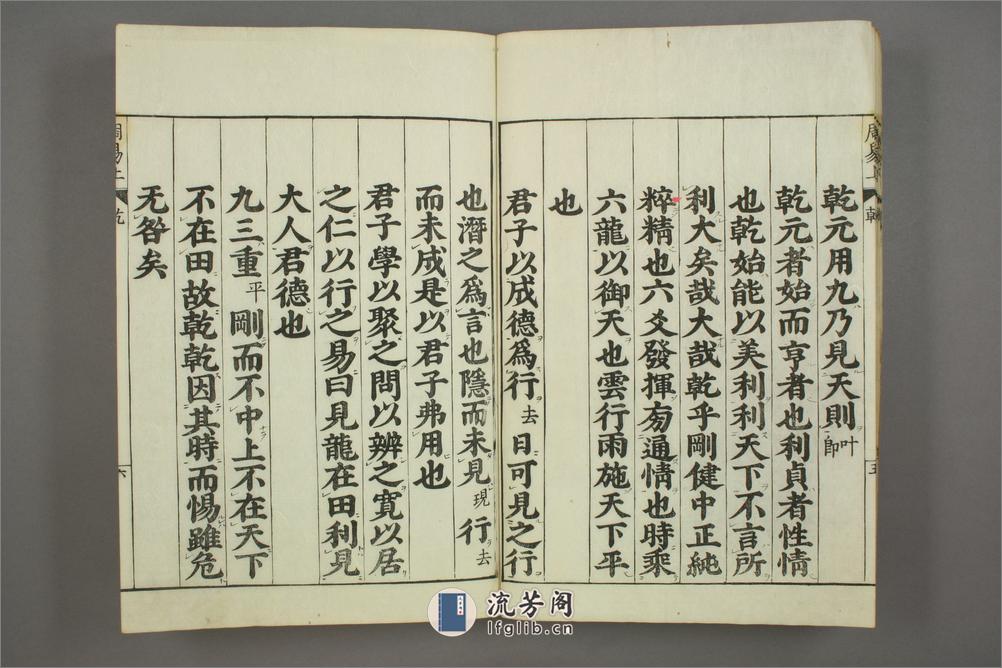 周易上 乾 五
乾元用九乃見天則叶節
乾元者始而亨者也利貞者性情
也乾始能以美利利天下不言所
利大矣哉大哉乾乎剛健中正純
粹精也六爻發揮旁通情也時乘
六龍以御天也雲行雨施天下平
也
君子以成德為行去日可見之行
也潛之為言也隱而未見現行去
而未成是以君子弗用也
君子學以聚之問以辨之寬以居
之仁以行之易曰見龍在田利見
大人君德也
九三重平剛而不中上不在天下
不在田故乾乾因其時而惕雖危
无咎矣
周易上 乾 六
流芳阁
lfglib.cn